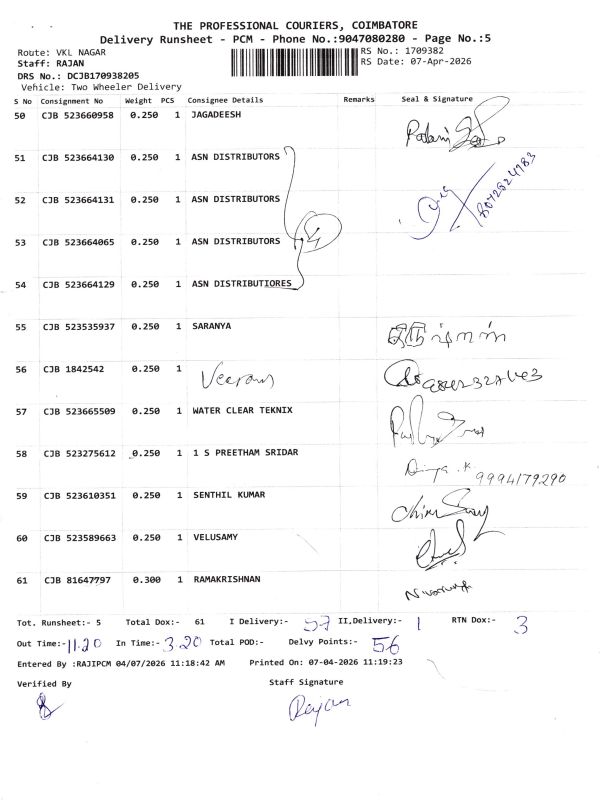 THE PROFESSIONAL COURIERS, COIMBATORE
Delivery Runsheet - PCM - Phone No.:9047080280 - Page No.:5
Route: VKL NAGAR RS No.: 1709382
Staff: RAJAN RS Date: 07-Apr-2026
DRS No.: DCJB170938205
Vehicle: Two Wheeler Delivery
S No Consignment No Weight PCS Consignee Details Remarks Seal & Signature
50 CJB 523660958 0.250 1 JAGADEESH
51 CJB 523664130 0.250 1 ASN DISTRIBUTORS
52 CJB 523664131 0.250 1 ASN DISTRIBUTORS 8072824983
53 CJB 523664065 0.250 1 ASN DISTRIBUTORS
54 CJB 523664129 0.250 1 ASN DISTRIBUTIORES
55 CJB 523535937 0.250 1 SARANYA
56 CJB 1842542 0.250 1
57 CJB 523665509 0.250 1 WATER CLEAR TEKNIX
58 CJB 523275612 0.250 1 1 S PREETHAM SRIDAR Divya .K 9994179290
59 CJB 523610351 0.250 1 SENTHIL KUMAR
60 CJB 523589663 0.250 1 VELUSAMY
61 CJB 81647797 0.300 1 RAMAKRISHNAN
Tot. Runsheet:- 5 Total Dox:- 61 I Delivery:- 57 II,Delivery:- 1 RTN Dox:- 3
Out Time:- 11.20 In Time:- 3.20 Total POD:- Delvy Points:- 56
Entered By :RAJIPCM 04/07/2026 11:18:42 AM Printed On: 07-04-2026 11:19:23
Verified By Staff Signature
Rajan